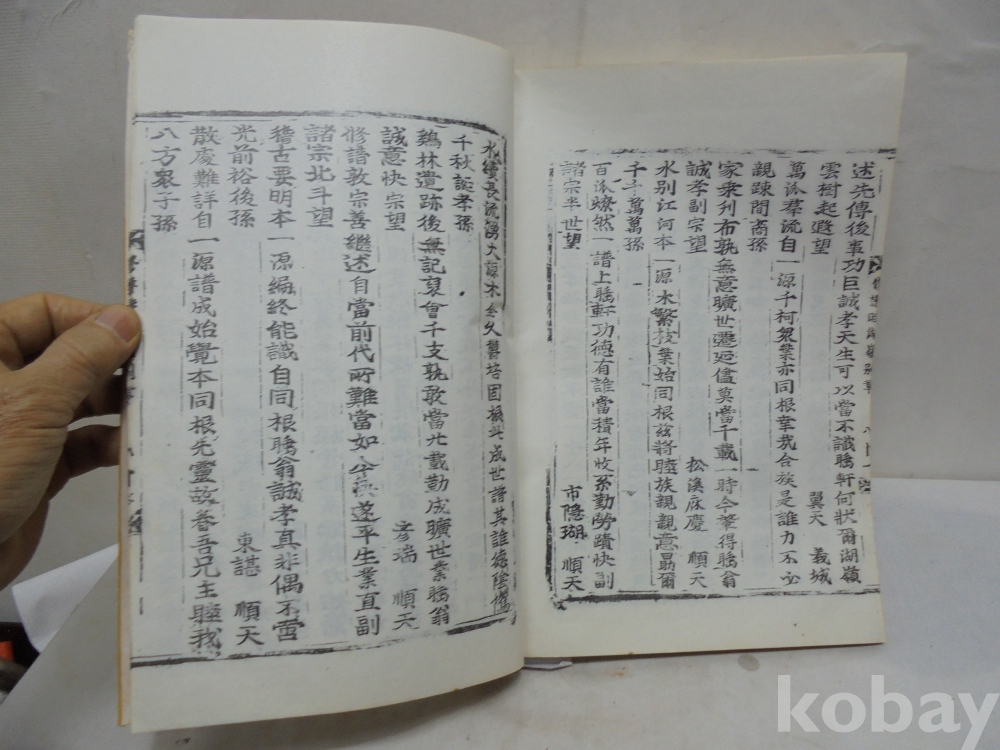 述先傳後事功巨誠孝天生可以當不識聽軒何狀爾湖嶺
雲樹起遐望
翼天 義城
萬派羣流自一源千柯衆葉亦同根幸哉合族是誰力不必
親疎間裔孫
家乘刋布孰無意曠世遷延儘莫當千載一時今筆得聽翁
誠孝副宗望
松溪 庥慶 順天
水別江河本一源木繁枝葉始同根玆將睦族親親意勗爾
千千萬萬孫
百派燦然一譜上聽軒功德有誰當積年收系勤勞蹟快副
諸宗半世望
市隐瑚 順天
千秋誕孝孫
鷄林遺跡後無記裒會千支孰敢當廿載勤成曠世業聽翁
誠意快宗望
彦瑞 順天
修譜敦宗善繼述自當前代所難當如今遂平生業直副
諸宗北斗望
稽古要明本一源編終能識自同根聽翁誠孝真非偶不啻
光前裕後孫
東諶 順天
散處難詳自一源譜成始覺本同根先靈故眷吾兄主睦我
八方衆子孫
kobay